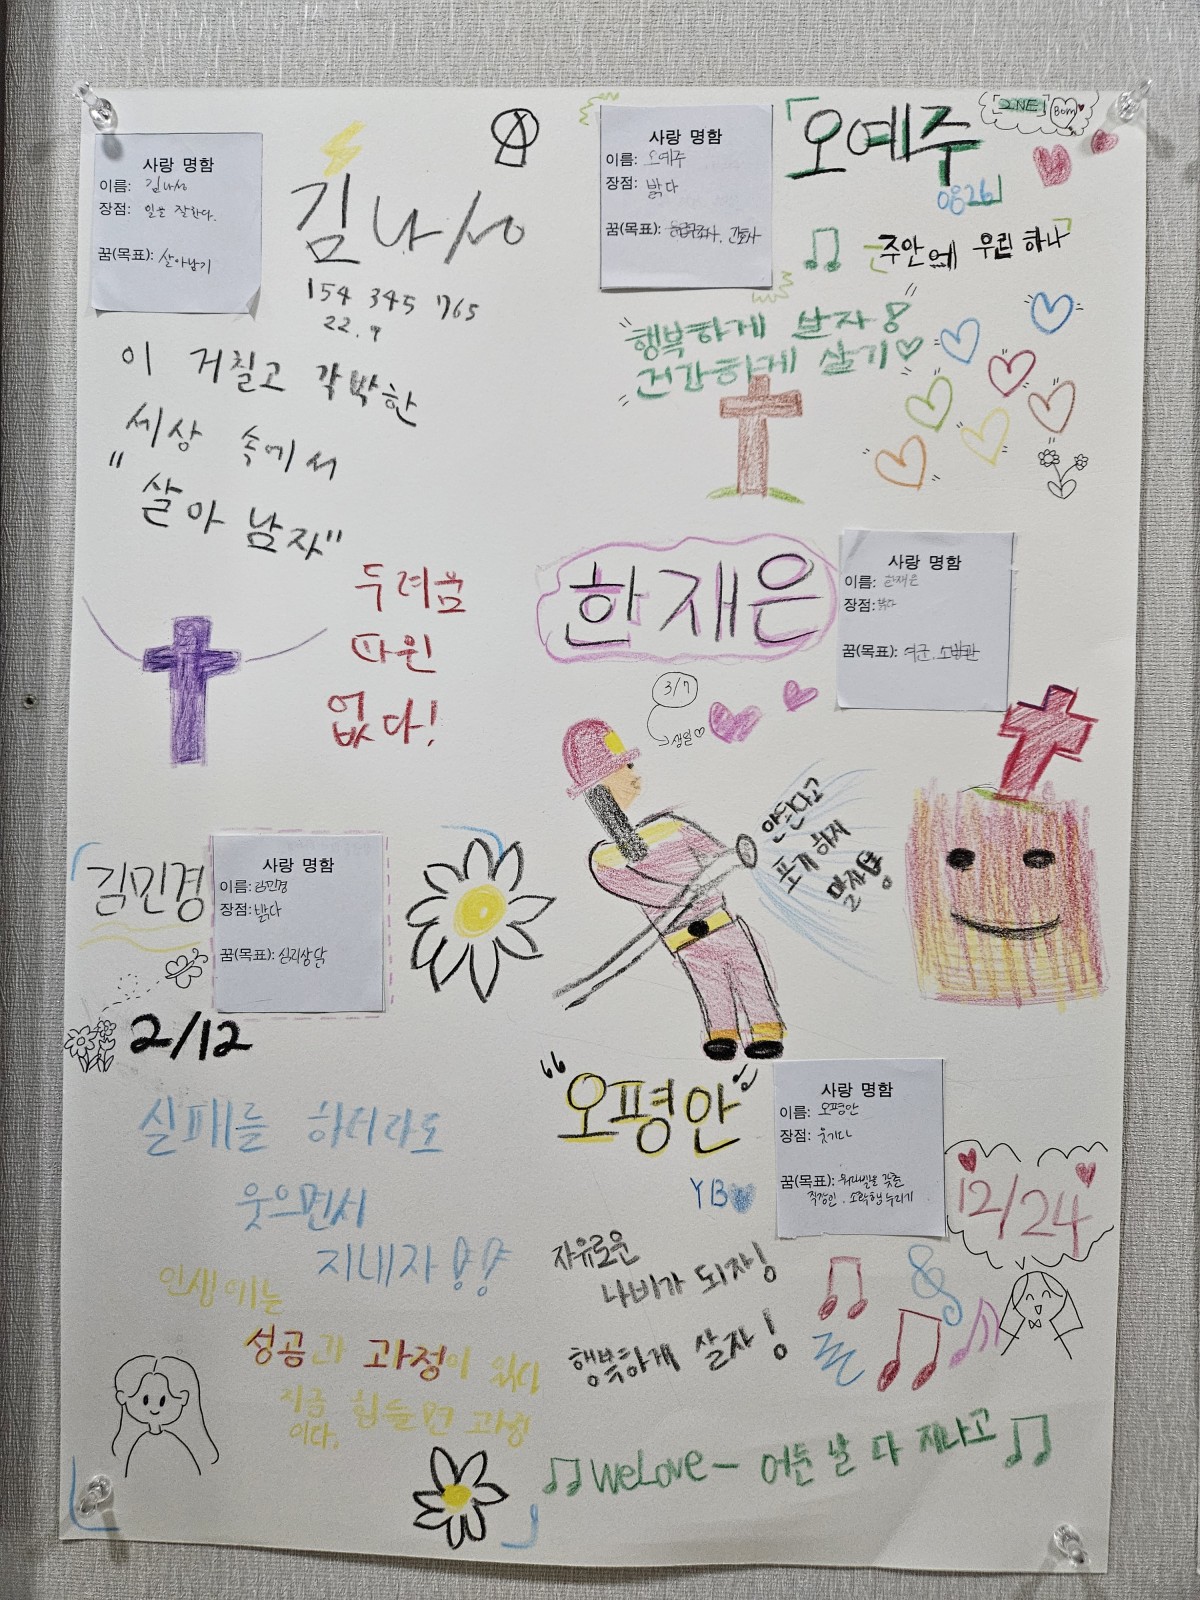 사랑 명함
이름: 김나성
장점: 일을 잘한다.
꿈(목표): 살아남기
김나성
154 345 765
22.7
이 거칠고 각박한
세상 속에서
"살아남자"
두려움
따윈
없다!
사랑 명함
이름: 오예주
장점: 밝다
꿈(목표): 응급구조사, 간호사
「오예주
0826」
2NE1
Bom
「주안에 우린 하나」
"행복하게 살자!
건강하게 살기♡"
한재은
사랑 명함
이름: 한재은
장점: 밝다
꿈(목표): 여군, 소방관
3/7
생일♡
안된다고
포기 하지
말자
김민경
사랑 명함
이름: 김민경
장점: 밝다
꿈(목표): 심리상담
2/12
실패를 하더라도
웃으면서
지내자!!
인생에는
성공과 과정이 있다
지금 힘들면 과정
이다.
"오평안"
사랑 명함
이름: 오평안
장점: 웃기다
꿈(목표): 워라밸을 갖춘
직장인, 소확행 누리기
12/24
YB
자유로운
나비가 되자!
행복하게 살자!
WeLove - 어둔 날 다 지나고